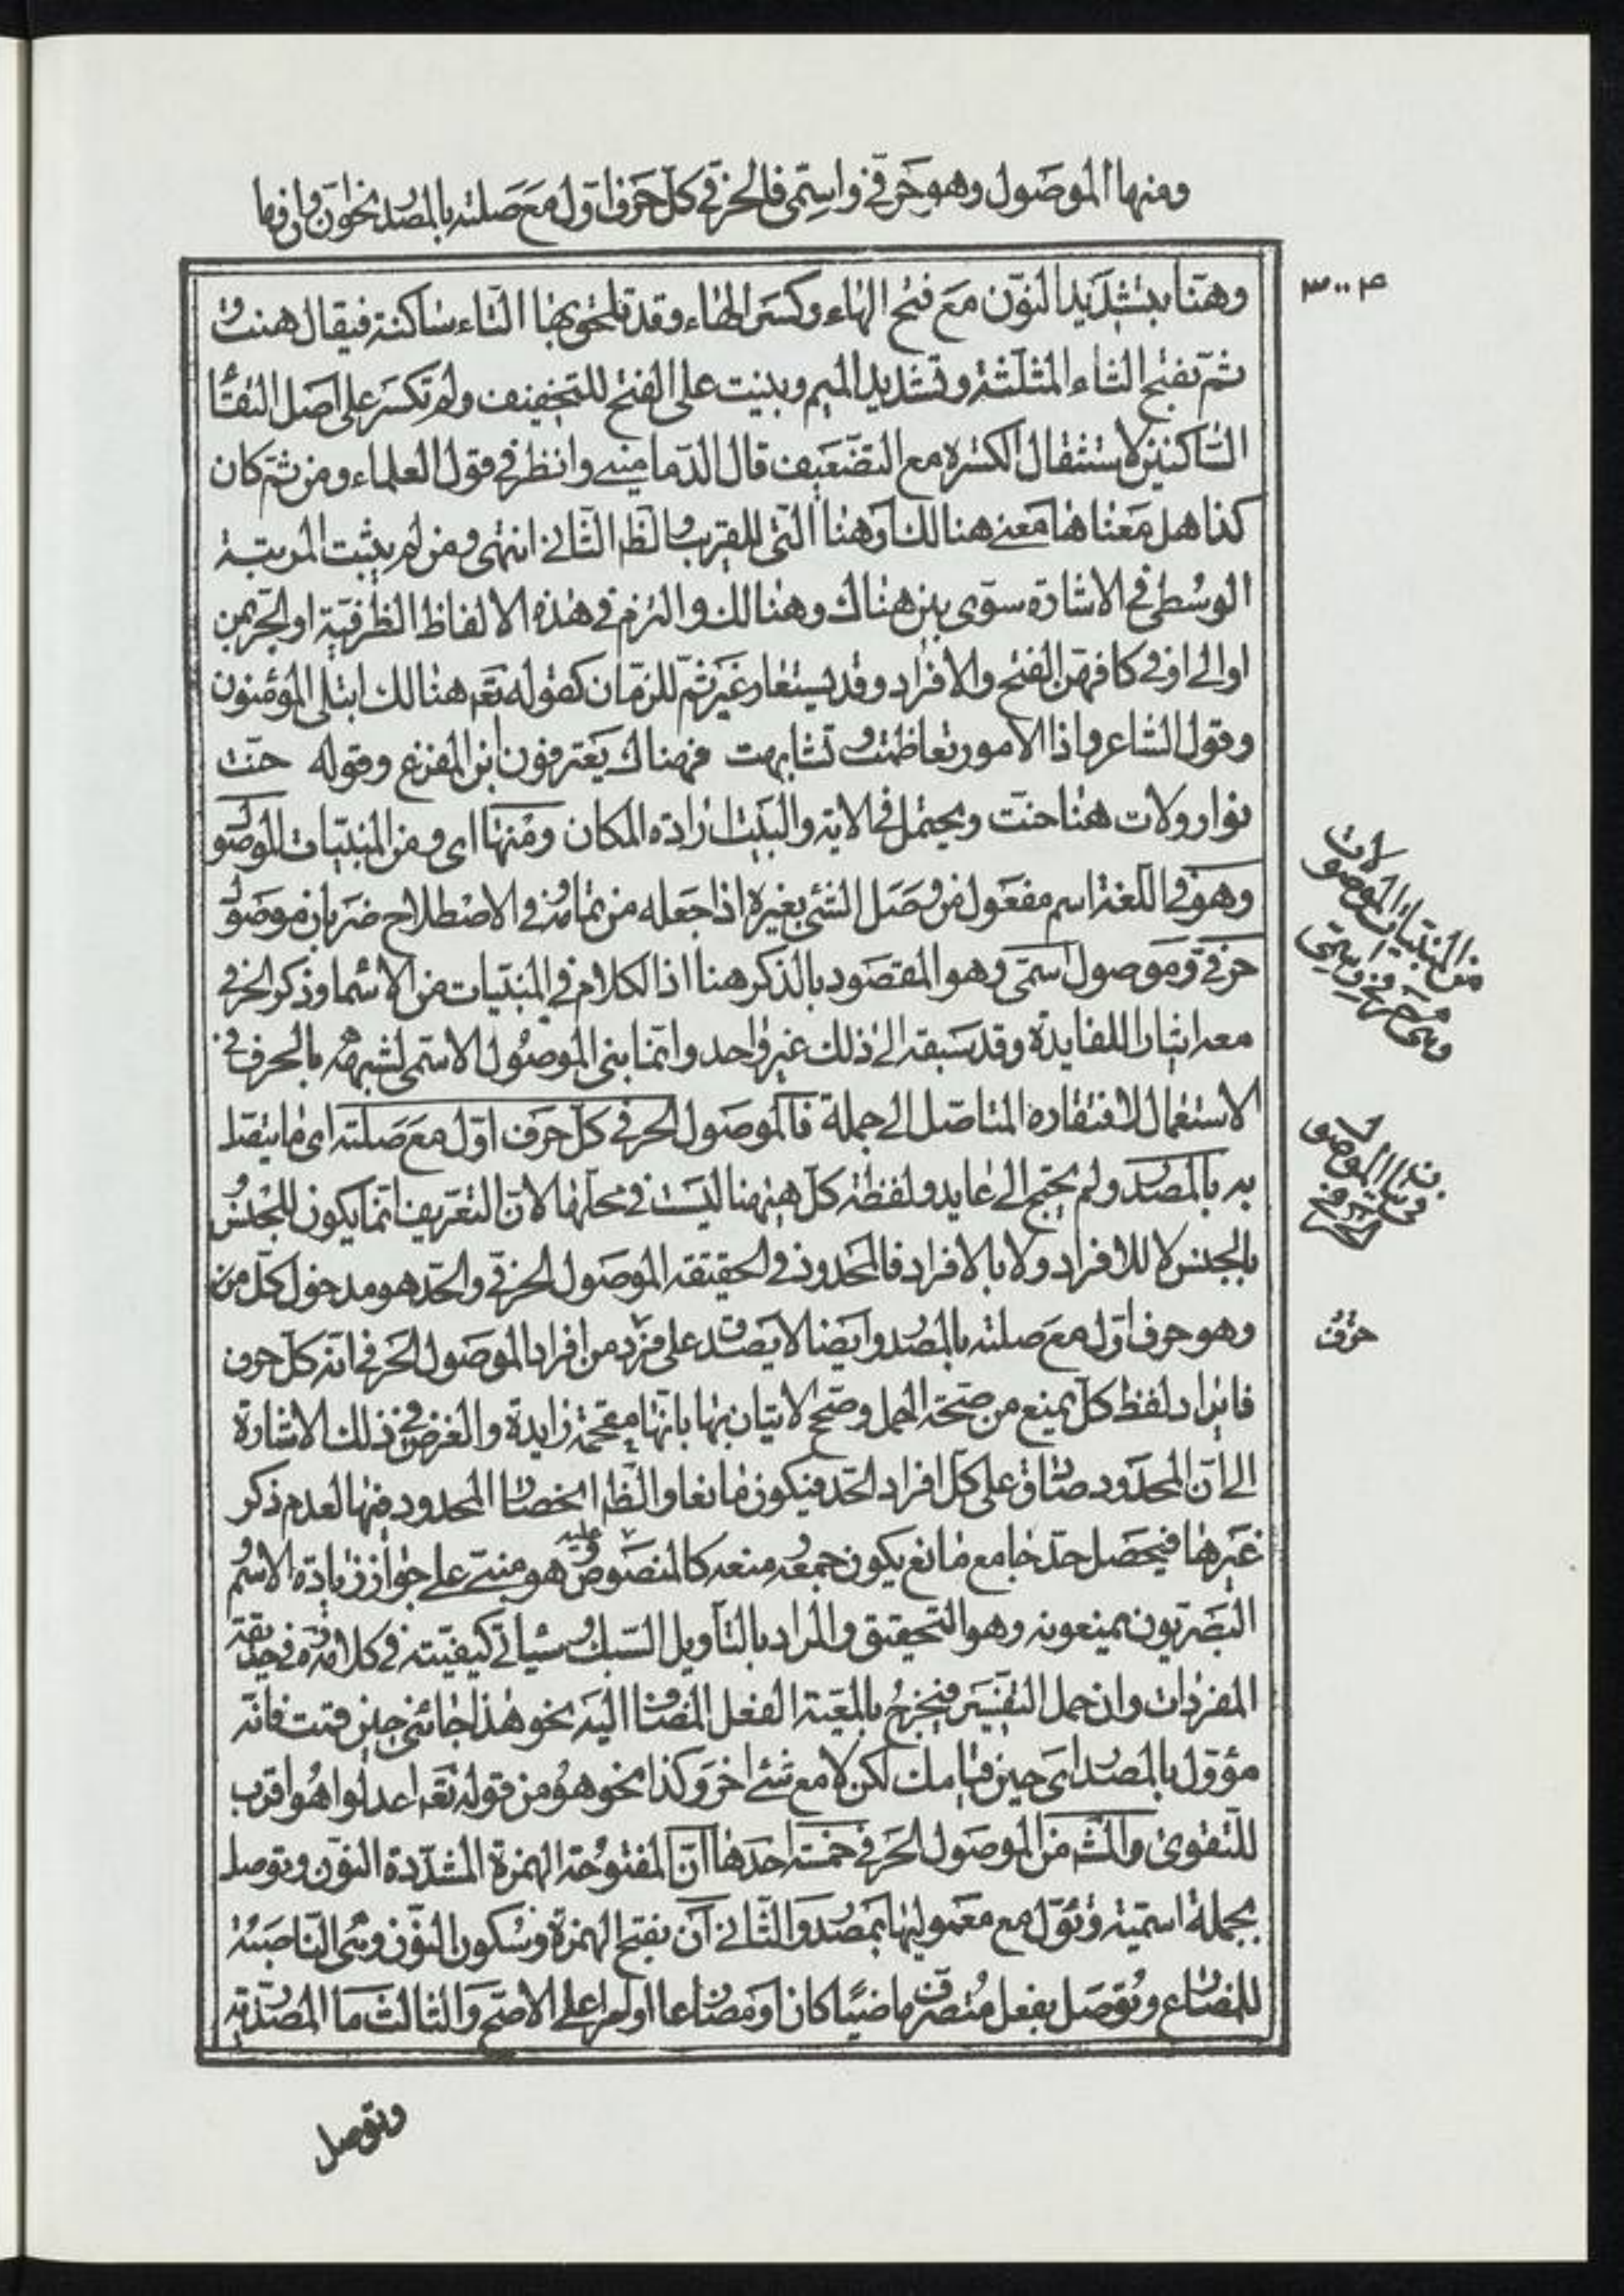 ومنها الموصول وهو حرفي واسمي فالحرفي كل حرف اول مع صلته بالمصدر نحو ان وان وما
ص ٣٠٠
وهنا بتشديد النون مع فتح الهاء وكسر الهاء وقد تلحق بهنا التاء ساكنة فيقال هنت و
ثم تفتح الثاء المثلثة وتشديد الميم وبنيت على الفتح للتخفيف ولم تكسر على اصل التقا
الساكنين لاستثقال الكسرة مع التضعيف قال الدماميني وانظر في قول العلماء ومن ثم كان
كذا هل معناها معنى هنالك او هنا التي للقريب والظ الثاني انتهى ومن لم يثبت المرتبة
الوسطى في الاشارة سوى بين هناك وهنالك والتزم في هذه الالفاظ الظرفية او الجر بمن
او الى او في كافهن الفتح والافراد وقد يستعار غير ثم للزمان كقوله تعه هنالك ابتلي المؤمنون
وقول الشاعر واذا الامور تعاظمت و تشابهت فهناك يعترفون اين المفزع وقوله حنت
نوار ولات هنا حنت ويحتمل في الاية والبيت ارادة المكان ومنها اى ومن المبنيات الموصو
وهو في اللغة اسم مفعول من وصل الشئ بغيره اذا جعله من تمامه وفي الاصطلاح ضربان موصول
حرفي وموصول اسمي وهو المقصود بالذكر هنا اذ الكلام في المبنيات من الاسماء وذكر الحرفي
معه ايثارا للفايدة وقد سبقه الى ذلك غير واحد وانما بنى الموصول الاسمي لشبهه بالحرف في
الاستعمال لافتقاره المتاصل الى جملة فالموصول الحرفي كل حرف اول مع صلته اى ما يتصل
به بالمصدر ولم يحتج الى عايد ولفظة كل ههنا ليست في محلها لان التعريف انما يكون للجنس و
بالجنس لا للافراد ولا بالافراد فالمحدود في الحقيقة الموصول الحرفي والحد هو مدخول كل من
وهو حرف اول مع صلته بالمصدر وايضا لا يصدق على فرد من افراد الموصول الحرفي انه كل حرف
فايراد لفظ كل يمنع من صحة الحمل وصح الاتيان بها بانها مقحمة زايدة والغرض من ذلك الاشارة
الى ان المحدود صادق على كل افراد الحد فيكون مانعا والظ انحصار المحدود فيها لعدم ذكر
غيرها فيحصل حد جامع مانع يكون جمعه و منعه كالمنصوص عليه وهو مبني على جواز زيادة الاسم و
البصريون يمنعونه وهو التحقيق والمراد بالتاويل السبك و سياتي كيفيته في كلامه في حديقة
المفردات وان حمل التفسير فيخرج بالمعية الفعل المضاف اليه نحو هذا جائني حين قمت فانه
مؤول بالمصدر اى حين قيامك لكن لا مع شئ اخر وكذا نحو هو من قوله تعه اعدلوا هو اقرب
للتقوى والمشه من الموصول الحرفي خمسة احدها ان المفتوحة الهمزة المشددة النون وتوصل
بجملة اسمية وتؤول مع معموليها بمصدر والثاني ان بفتح الهمزة وسكون النون وهى الناصبة
للمضارع وتوصل بفعل متصرف ماضيا كان او مضارعا او امرا على الاصح والثالث ما المصدرية
من المبنيات الموصولات
وهى حرفي واسمي
حرف
وتوصل